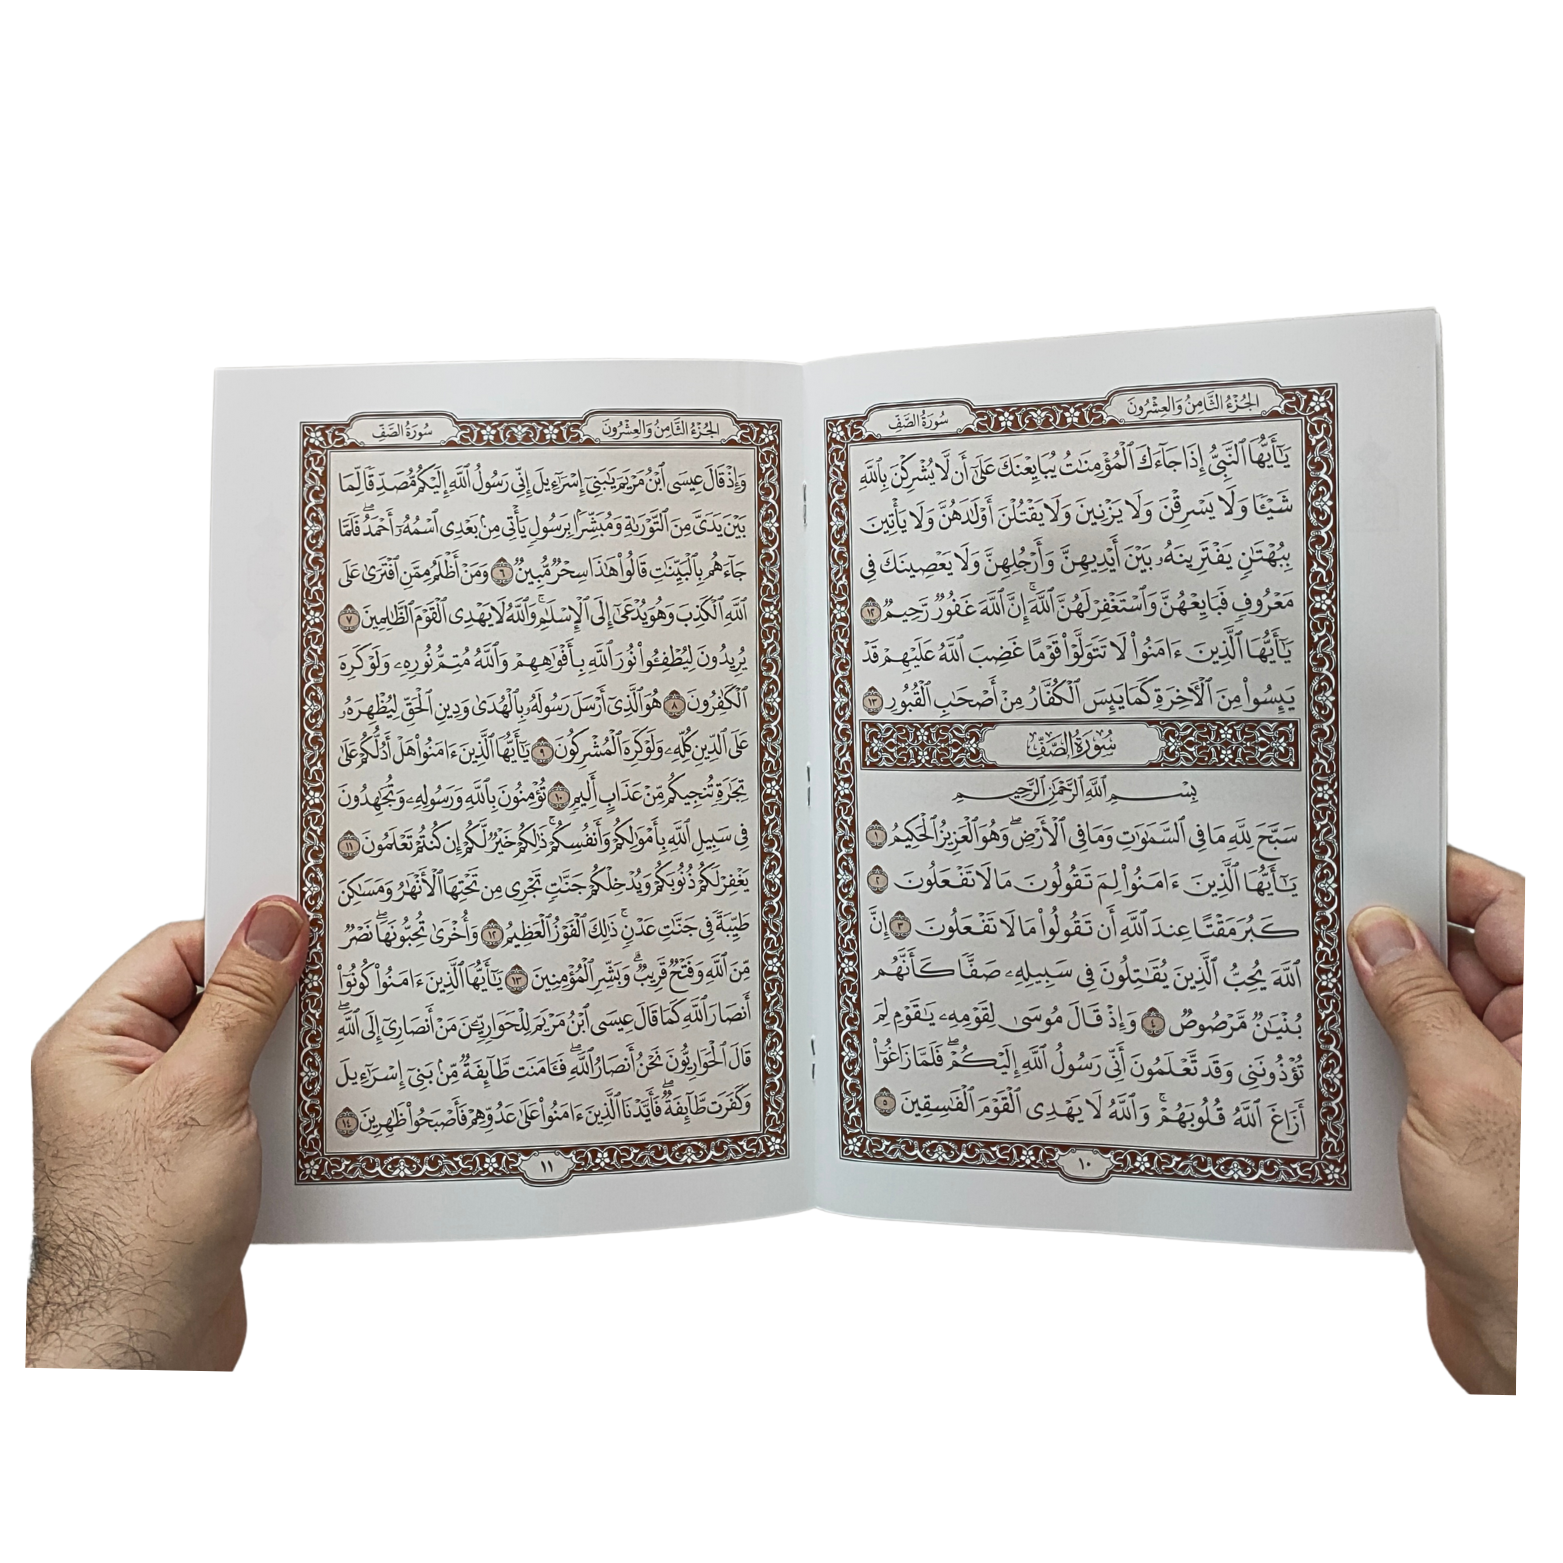 الجُزْءُ الثَّامِنُ وَالعِشْرُونَ
سُورَةُ الصَّفِّ
يَـٰٓأَيُّهَا ٱلنَّبِىُّ إِذَا جَآءَكَ ٱلْمُؤْمِنَـٰتُ يُبَايِعْنَكَ عَلَىٰٓ أَن لَّا يُشْرِكْنَ بِٱللَّهِ
شَيْـًٔا وَلَا يَسْرِقْنَ وَلَا يَزْنِينَ وَلَا يَقْتُلْنَ أَوْلَـٰدَهُنَّ وَلَا يَأْتِينَ
بِبُهْتَـٰنٍ يَفْتَرِينَهُۥ بَيْنَ أَيْدِيهِنَّ وَأَرْجُلِهِنَّ وَلَا يَعْصِينَكَ فِى
مَعْرُوفٍ فَبَايِعْهُنَّ وَٱسْتَغْفِرْ لَهُنَّ ٱللَّهَ ۚ إِنَّ ٱللَّهَ غَفُورٌ رَّحِيمٌ ١٢
يَـٰٓأَيُّهَا ٱلَّذِينَ ءَامَنُوا۟ لَا تَتَوَلَّوْا۟ قَوْمًا غَضِبَ ٱللَّهُ عَلَيْهِمْ قَدْ
يَئِسُوا۟ مِنَ ٱلْـَٔاخِرَةِ كَمَا يَئِسَ ٱلْكُفَّارُ مِنْ أَصْحَـٰبِ ٱلْقُبُورِ ١٣
سُورَةُ الصَّفِّ
بِسْمِ ٱللَّهِ ٱلرَّحْمَـٰنِ ٱلرَّحِيمِ
سَبَّحَ لِلَّهِ مَا فِى ٱلسَّمَـٰوَٰتِ وَمَا فِى ٱلْأَرْضِ ۖ وَهُوَ ٱلْعَزِيزُ ٱلْحَكِيمُ ١
يَـٰٓأَيُّهَا ٱلَّذِينَ ءَامَنُوا۟ لِمَ تَقُولُونَ مَا لَا تَفْعَلُونَ ٢
كَبُرَ مَقْتًا عِندَ ٱللَّهِ أَن تَقُولُوا۟ مَا لَا تَفْعَلُونَ ٣ إِنَّ
ٱللَّهَ يُحِبُّ ٱلَّذِينَ يُقَـٰتِلُونَ فِى سَبِيلِهِۦ صَفًّا كَأَنَّهُم
بُنْيَـٰنٌ مَّرْصُوصٌ ٤ وَإِذْ قَالَ مُوسَىٰ لِقَوْمِهِۦ يَـٰقَوْمِ لِمَ
تُؤْذُونَنِى وَقَد تَّعْلَمُونَ أَنِّى رَسُولُ ٱللَّهِ إِلَيْكُمْ ۖ فَلَمَّا زَاغُوٓا۟
أَزَاغَ ٱللَّهُ قُلُوبَهُمْ ۚ وَٱللَّهُ لَا يَهْدِى ٱلْقَوْمَ ٱلْفَـٰسِقِينَ ٥
١٠
الجُزْءُ الثَّامِنُ وَالعِشْرُونَ
سُورَةُ الصَّفِّ
وَإِذْ قَالَ عِيسَى ٱبْنُ مَرْيَمَ يَـٰبَنِىٓ إِسْرَٰٓءِيلَ إِنِّى رَسُولُ ٱللَّهِ إِلَيْكُم مُّصَدِّقًا لِّمَا
بَيْنَ يَدَىَّ مِنَ ٱلتَّوْرَىٰةِ وَمُبَشِّرًۢا بِرَسُولٍ يَأْتِى مِنۢ بَعْدِى ٱسْمُهُۥٓ أَحْمَدُ ۖ فَلَمَّا
جَآءَهُم بِٱلْبَيِّنَـٰتِ قَالُوا۟ هَـٰذَا سِحْرٌ مُّبِينٌ ٦ وَمَنْ أَظْلَمُ مِمَّنِ ٱفْتَرَىٰ عَلَى
ٱللَّهِ ٱلْكَذِبَ وَهُوَ يُدْعَىٰٓ إِلَى ٱلْإِسْلَـٰمِ ۚ وَٱللَّهُ لَا يَهْدِى ٱلْقَوْمَ ٱلظَّـٰلِمِينَ ٧
يُرِيدُونَ لِيُطْفِـُٔوا۟ نُورَ ٱللَّهِ بِأَفْوَٰهِهِمْ وَٱللَّهُ مُتِمُّ نُورِهِۦ وَلَوْ كَرِهَ
ٱلْكَـٰفِرُونَ ٨ هُوَ ٱلَّذِىٓ أَرْسَلَ رَسُولَهُۥ بِٱلْهُدَىٰ وَدِينِ ٱلْحَقِّ لِيُظْهِرَهُۥ
عَلَى ٱلدِّينِ كُلِّهِۦ وَلَوْ كَرِهَ ٱلْمُشْرِكُونَ ٩ يَـٰٓأَيُّهَا ٱلَّذِينَ ءَامَنُوا۟ هَلْ أَدُلُّكُمْ عَلَىٰ
تِجَـٰرَةٍ تُنجِيكُم مِّنْ عَذَابٍ أَلِيمٍ ١٠ تُؤْمِنُونَ بِٱللَّهِ وَرَسُولِهِۦ وَتُجَـٰهِدُونَ
فِى سَبِيلِ ٱللَّهِ بِأَمْوَٰلِكُمْ وَأَنفُسِكُمْ ۚ ذَٰلِكُمْ خَيْرٌ لَّكُمْ إِن كُنتُمْ تَعْلَمُونَ ١١
يَغْفِرْ لَكُمْ ذُنُوبَكُمْ وَيُدْخِلْكُمْ جَنَّـٰتٍ تَجْرِى مِن تَحْتِهَا ٱلْأَنْهَـٰرُ وَمَسَـٰكِنَ
طَيِّبَةً فِى جَنَّـٰتِ عَدْنٍ ۚ ذَٰلِكَ ٱلْفَوْزُ ٱلْعَظِيمُ ١٢ وَأُخْرَىٰ تُحِبُّونَهَا ۖ نَصْرٌ
مِّنَ ٱللَّهِ وَفَتْحٌ قَرِيبٌ ۗ وَبَشِّرِ ٱلْمُؤْمِنِينَ ١٣ يَـٰٓأَيُّهَا ٱلَّذِينَ ءَامَنُوا۟ كُونُوٓا۟
أَنصَارَ ٱللَّهِ كَمَا قَالَ عِيسَى ٱبْنُ مَرْيَمَ لِلْحَوَارِيِّـۧنَ مَنْ أَنصَارِىٓ إِلَى ٱللَّهِ ۖ
قَالَ ٱلْحَوَارِيُّونَ نَحْنُ أَنصَارُ ٱللَّهِ ۖ فَـَٔامَنَت طَّآئِفَةٌ مِّنۢ بَنِىٓ إِسْرَٰٓءِيلَ
وَكَفَرَت طَّآئِفَةٌ ۖ فَأَيَّدْنَا ٱلَّذِينَ ءَامَنُوا۟ عَلَىٰ عَدُوِّهِمْ فَأَصْبَحُوا۟ ظَـٰهِرِينَ ١٤
١١